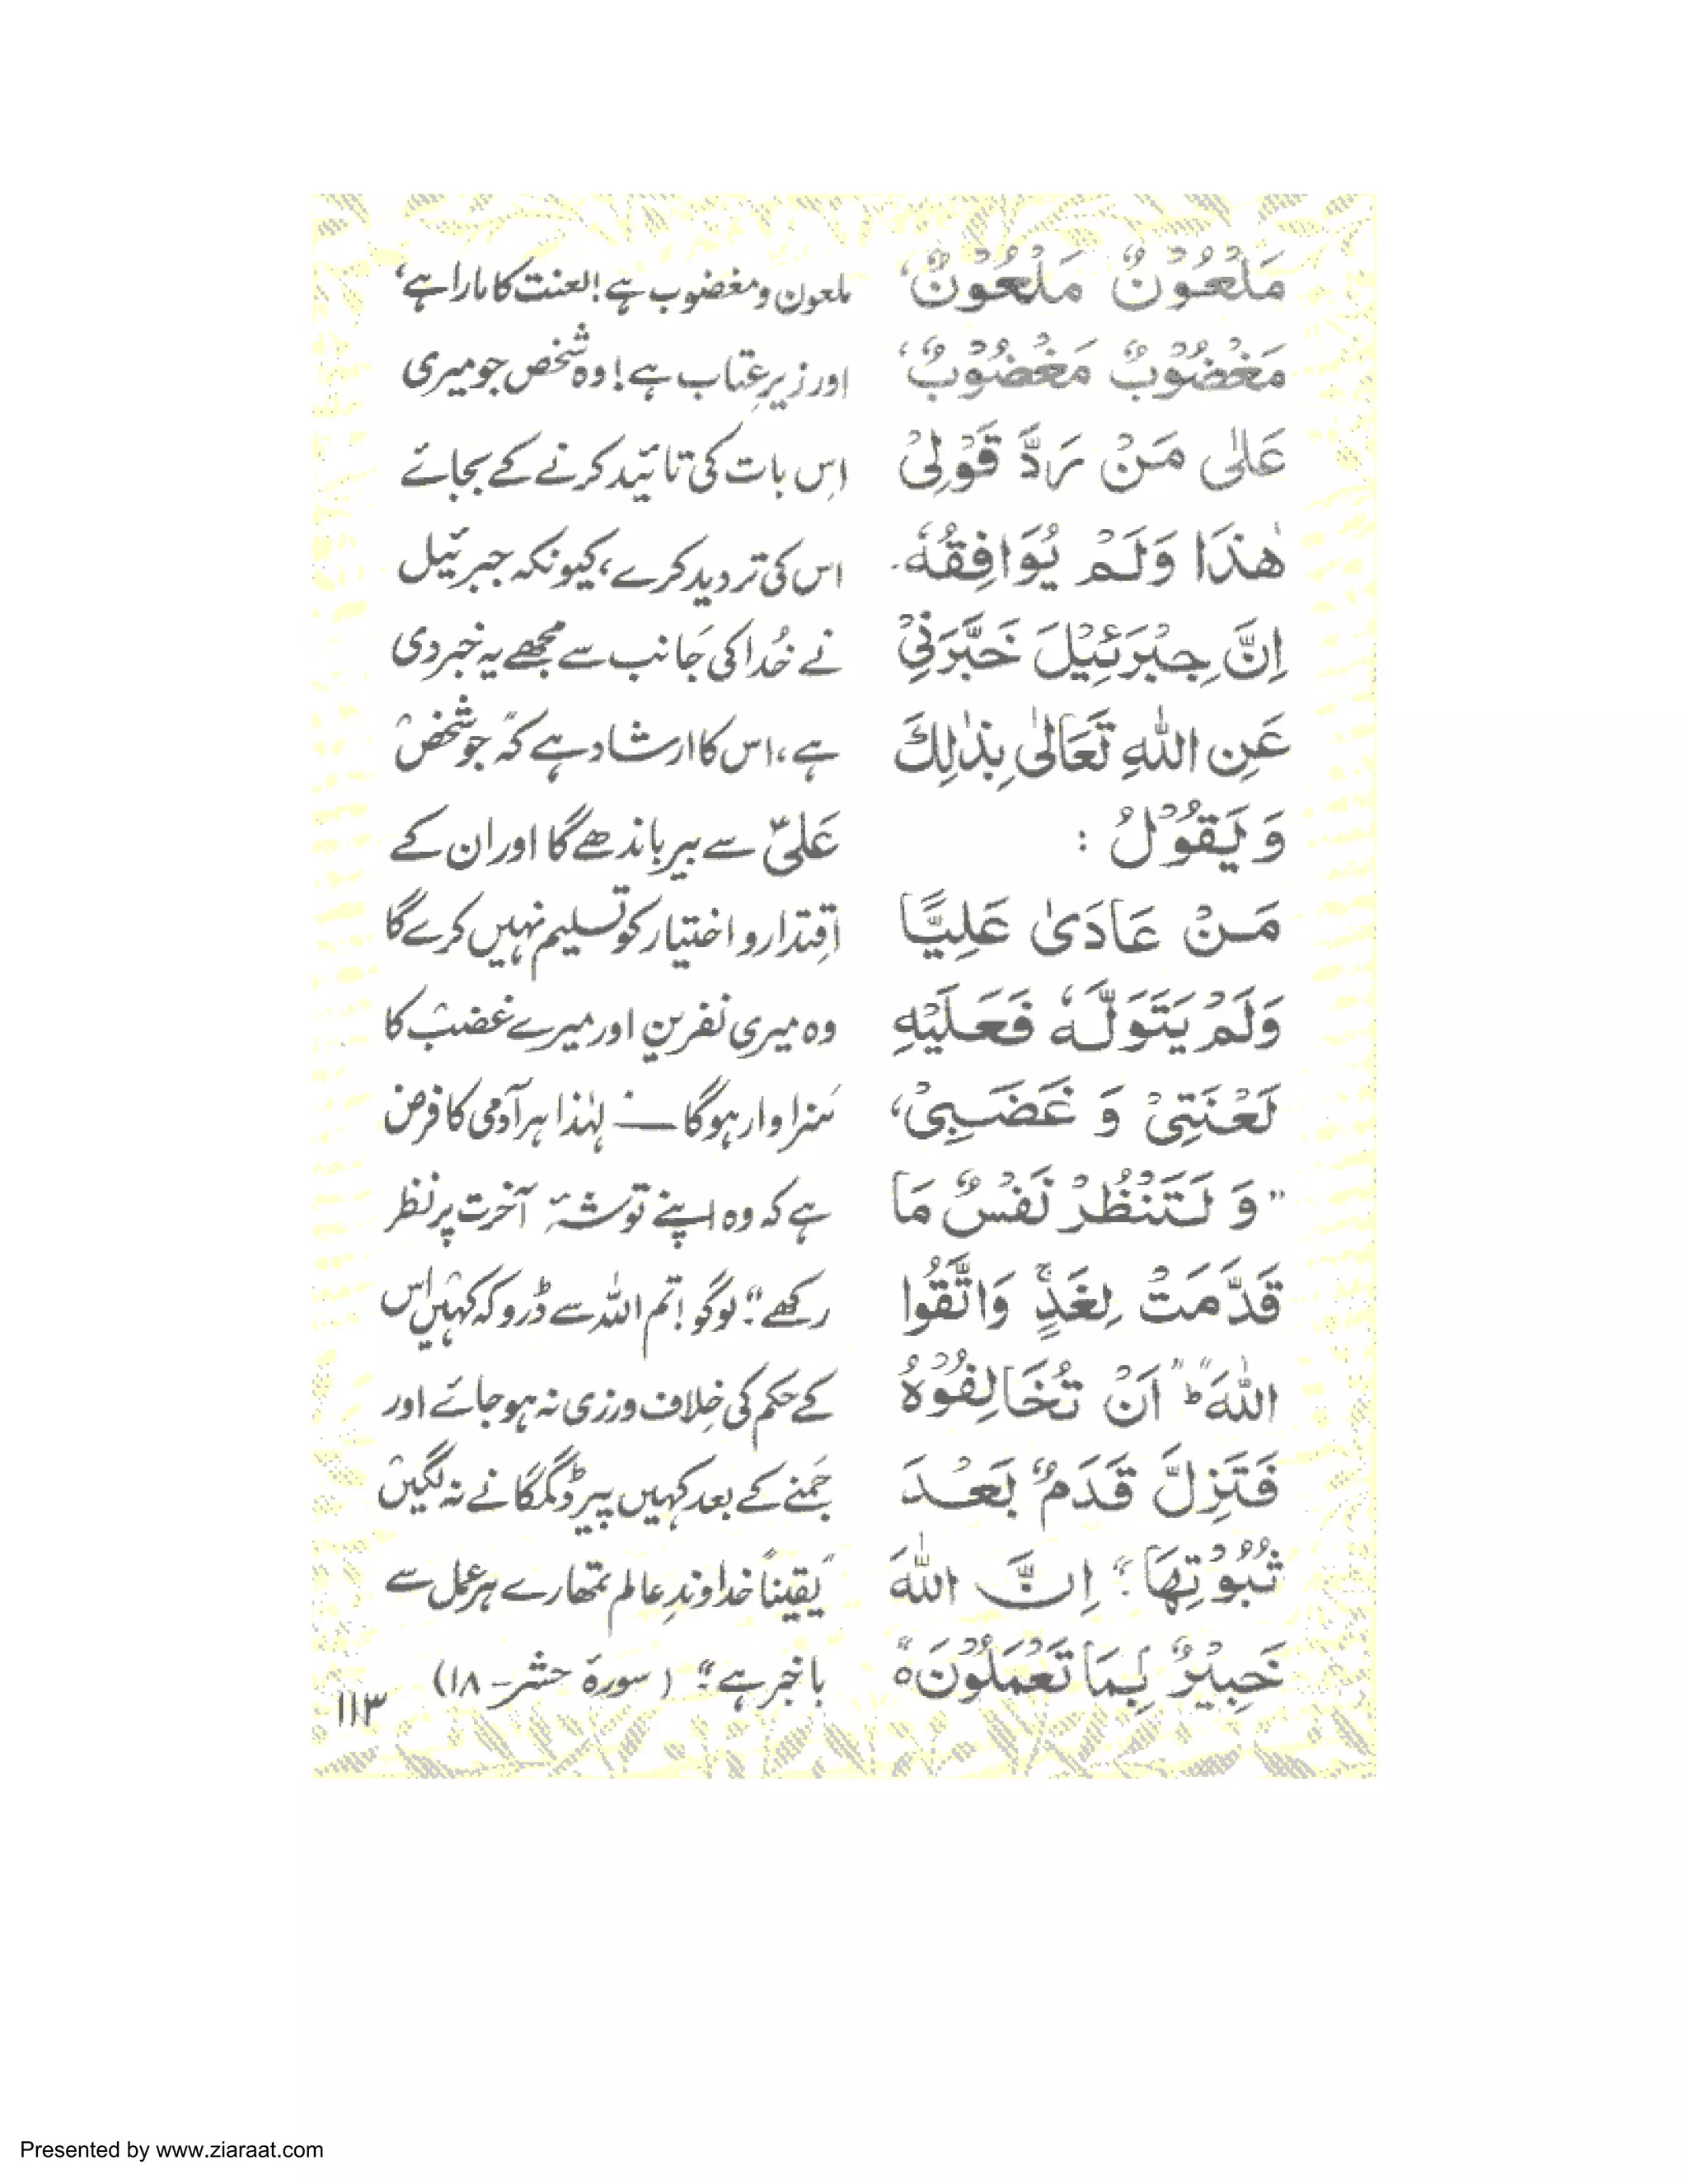 مَلْعُوْنٌ مَلْعُوْنٌ،
مَغْضُوْبٌ مَغْضُوْبٌ،
عَلٰی مَنْ رَدَّ قَوْلِیْ
هٰذَا وَلَمْ یُوَافِقْهُ۔
اِنَّ جِبْرَئِیْلَ خَبَّرَنِیْ
عَنِ اللّٰهِ تَعَالٰی بِذٰلِكَ
وَ یَقُوْلُ :
مَنْ عَادٰی عَلِیًّا
وَلَمْ یَتَوَلَّهٗ فَعَلَیْهِ
لَعْنَتِیْ وَ غَضَبِیْ،
"وَ لْتَنْظُرْ نَفْسٌ مَا
قَدَّمَتْ لِغَدٍ ۚ وَاتَّقُوا
اللّٰهَ ؕ" اَنْ تُخَالِفُوْهُ
فَتَزِلَّ قَدَمٌ بَعْدَ
ثُبُوْتِهَا؛" اِنَّ اللّٰهَ
خَبِیْرٌ بِمَا تَعْمَلُوْنَ ہ"
ملعون و مغضوب ہے! لعنت کا مارا ہے،
اور زیرِ عتاب ہے! وہ شخص جو میری
اِس بات کی تائید کرنے کے بجائے
اس کی تردید کرے، کیونکہ جبرئیل
نے خُدا کی جانب سے مجھے یہ خبر دی
ہے، اس کا ارشاد ہے کہ "جو شخص
علیؑ سے بیر باندھے گا اور ان کے
اقتدار و اختیار کو تسلیم نہیں کرے گا
وہ میری نفرین اور میرے غضب کا
سزاوار ہوگا" ــــــ لہٰذا ہر آدمی کا فرض
ہے کہ وہ اپنے توشۂ آخرت پر نظر
رکھے"؛ لوگو! تم اللہ سے ڈرو کہ کہیں اس
کے حکم کی خِلاف ورزی نہ ہو جائے اور
جَمنے کے بعد کہیں پیر ڈگمگانے نہ لگیں
"یقیناً خداوندِ عالم تمھارے ہر عمل سے
با خبر ہے"؛ (سورہ حشر - ۱۸)
۱۱۳
Presented by www.ziaraat.com